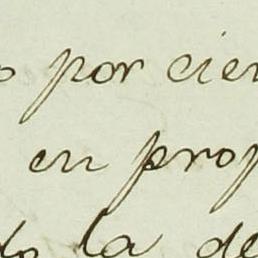 o por cien
en prop
do la de